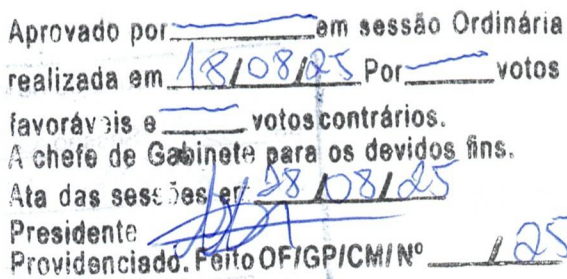 Aprovado por em sessão Ordinária
realizada em 18/08/25 Por votos
favoráveis e votos contrários.
A chefe de Gabinete para os devidos fins.
Ata das sessões em 18/08/25
Presidente
Providenciado. Feito OF/GP/CM/Nº /25